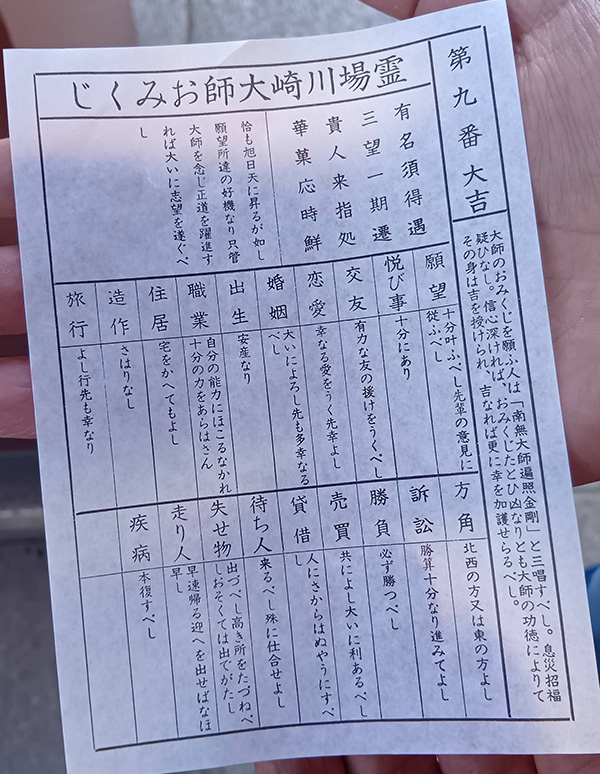 第九番大吉
大師のおみくじを願ふ人は「南無大師遍照金剛」と三唱すべし。息災招福
疑ひなし。信心深ければ、おみくじたとひ凶なりとも大師の功徳によりて
その身は吉を授けられ、吉なれば更に幸を加護せらるべし。
霊場川崎大師おみくじ
有名須得遇
三望一期遷
貴人来指処
華菓応時鮮
恰も旭日天に昇るが如し
願望所達の好機なり只管
大師を念じ正道を躍進す
れば大いに志望を遂ぐべ
し
願望
十分叶ふべし先輩の意見に
従ふべし
悦び事
十分にあり
交友
有力な友の援けをうくべし
恋愛
幸なる愛をうく先幸よし
婚姻
大いによろし先も多幸なる
べし
出生
安産なり
職業
自分の能力にほこるなかれ
十分の力をあらはさん
住居
宅をかへてもよし
造作
さはりなし
旅行
よし行先も幸なり
方角
北西の方又は東の方よし
訴訟
勝算十分なり進みてよし
勝負
必ず勝つべし
売買
共によし大いに利あるべし
貸借
人にさからはぬやうにすべ
し
待ち人
来るべし殊に仕合せよし
失せ物
出づべし高き所をたづねべ
しおそくては出でがたし
走り人
早速帰る迎へを出せばなほ
早し
疾病
本復すべし